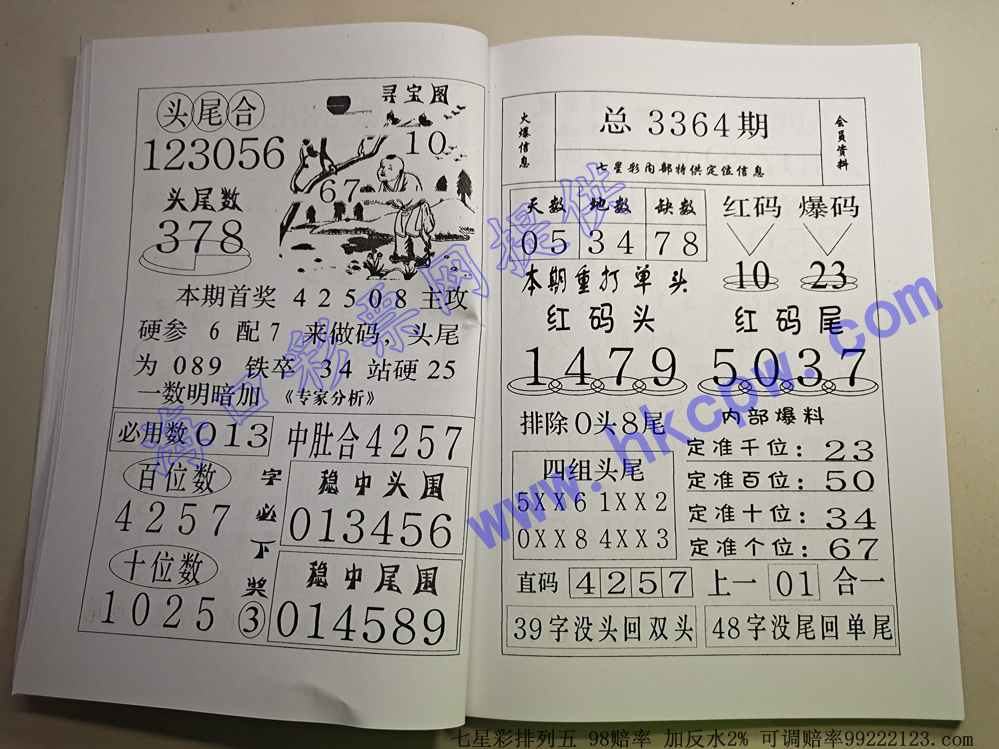 头尾合
123056
头尾数
378
寻宝图
10
67
本期首奖 4 2 5 0 8 主攻
硬参 6 配 7 来做码，头尾
为 089 铁卒 3 4 站硬 25
一数明暗加 《专家分析》
必用数 013
中肚合 4257
百位数
4257
十位数
1025
字必下奖③
稳中头围
013456
稳中尾围
014589
火爆信息
总 3364期
七星彩内部特供定位信息
会员资料
天数 地数 缺数
05 34 78
本期重打单头
红码 爆码
10 23
红码头
1479
红码尾
5037
排除0头8尾
四组头尾
5XX6 1XX2
0XX8 4XX3
内部爆料
定准千位：23
定准百位：50
定准十位：34
定准个位：67
直码 4257 上一 01 合一
39字没头回双头
48字没尾回单尾
海口彩票网提供
www.hkcpw.com
七星彩排列五 98赔率 加反水2% 可调赔率99222123.com